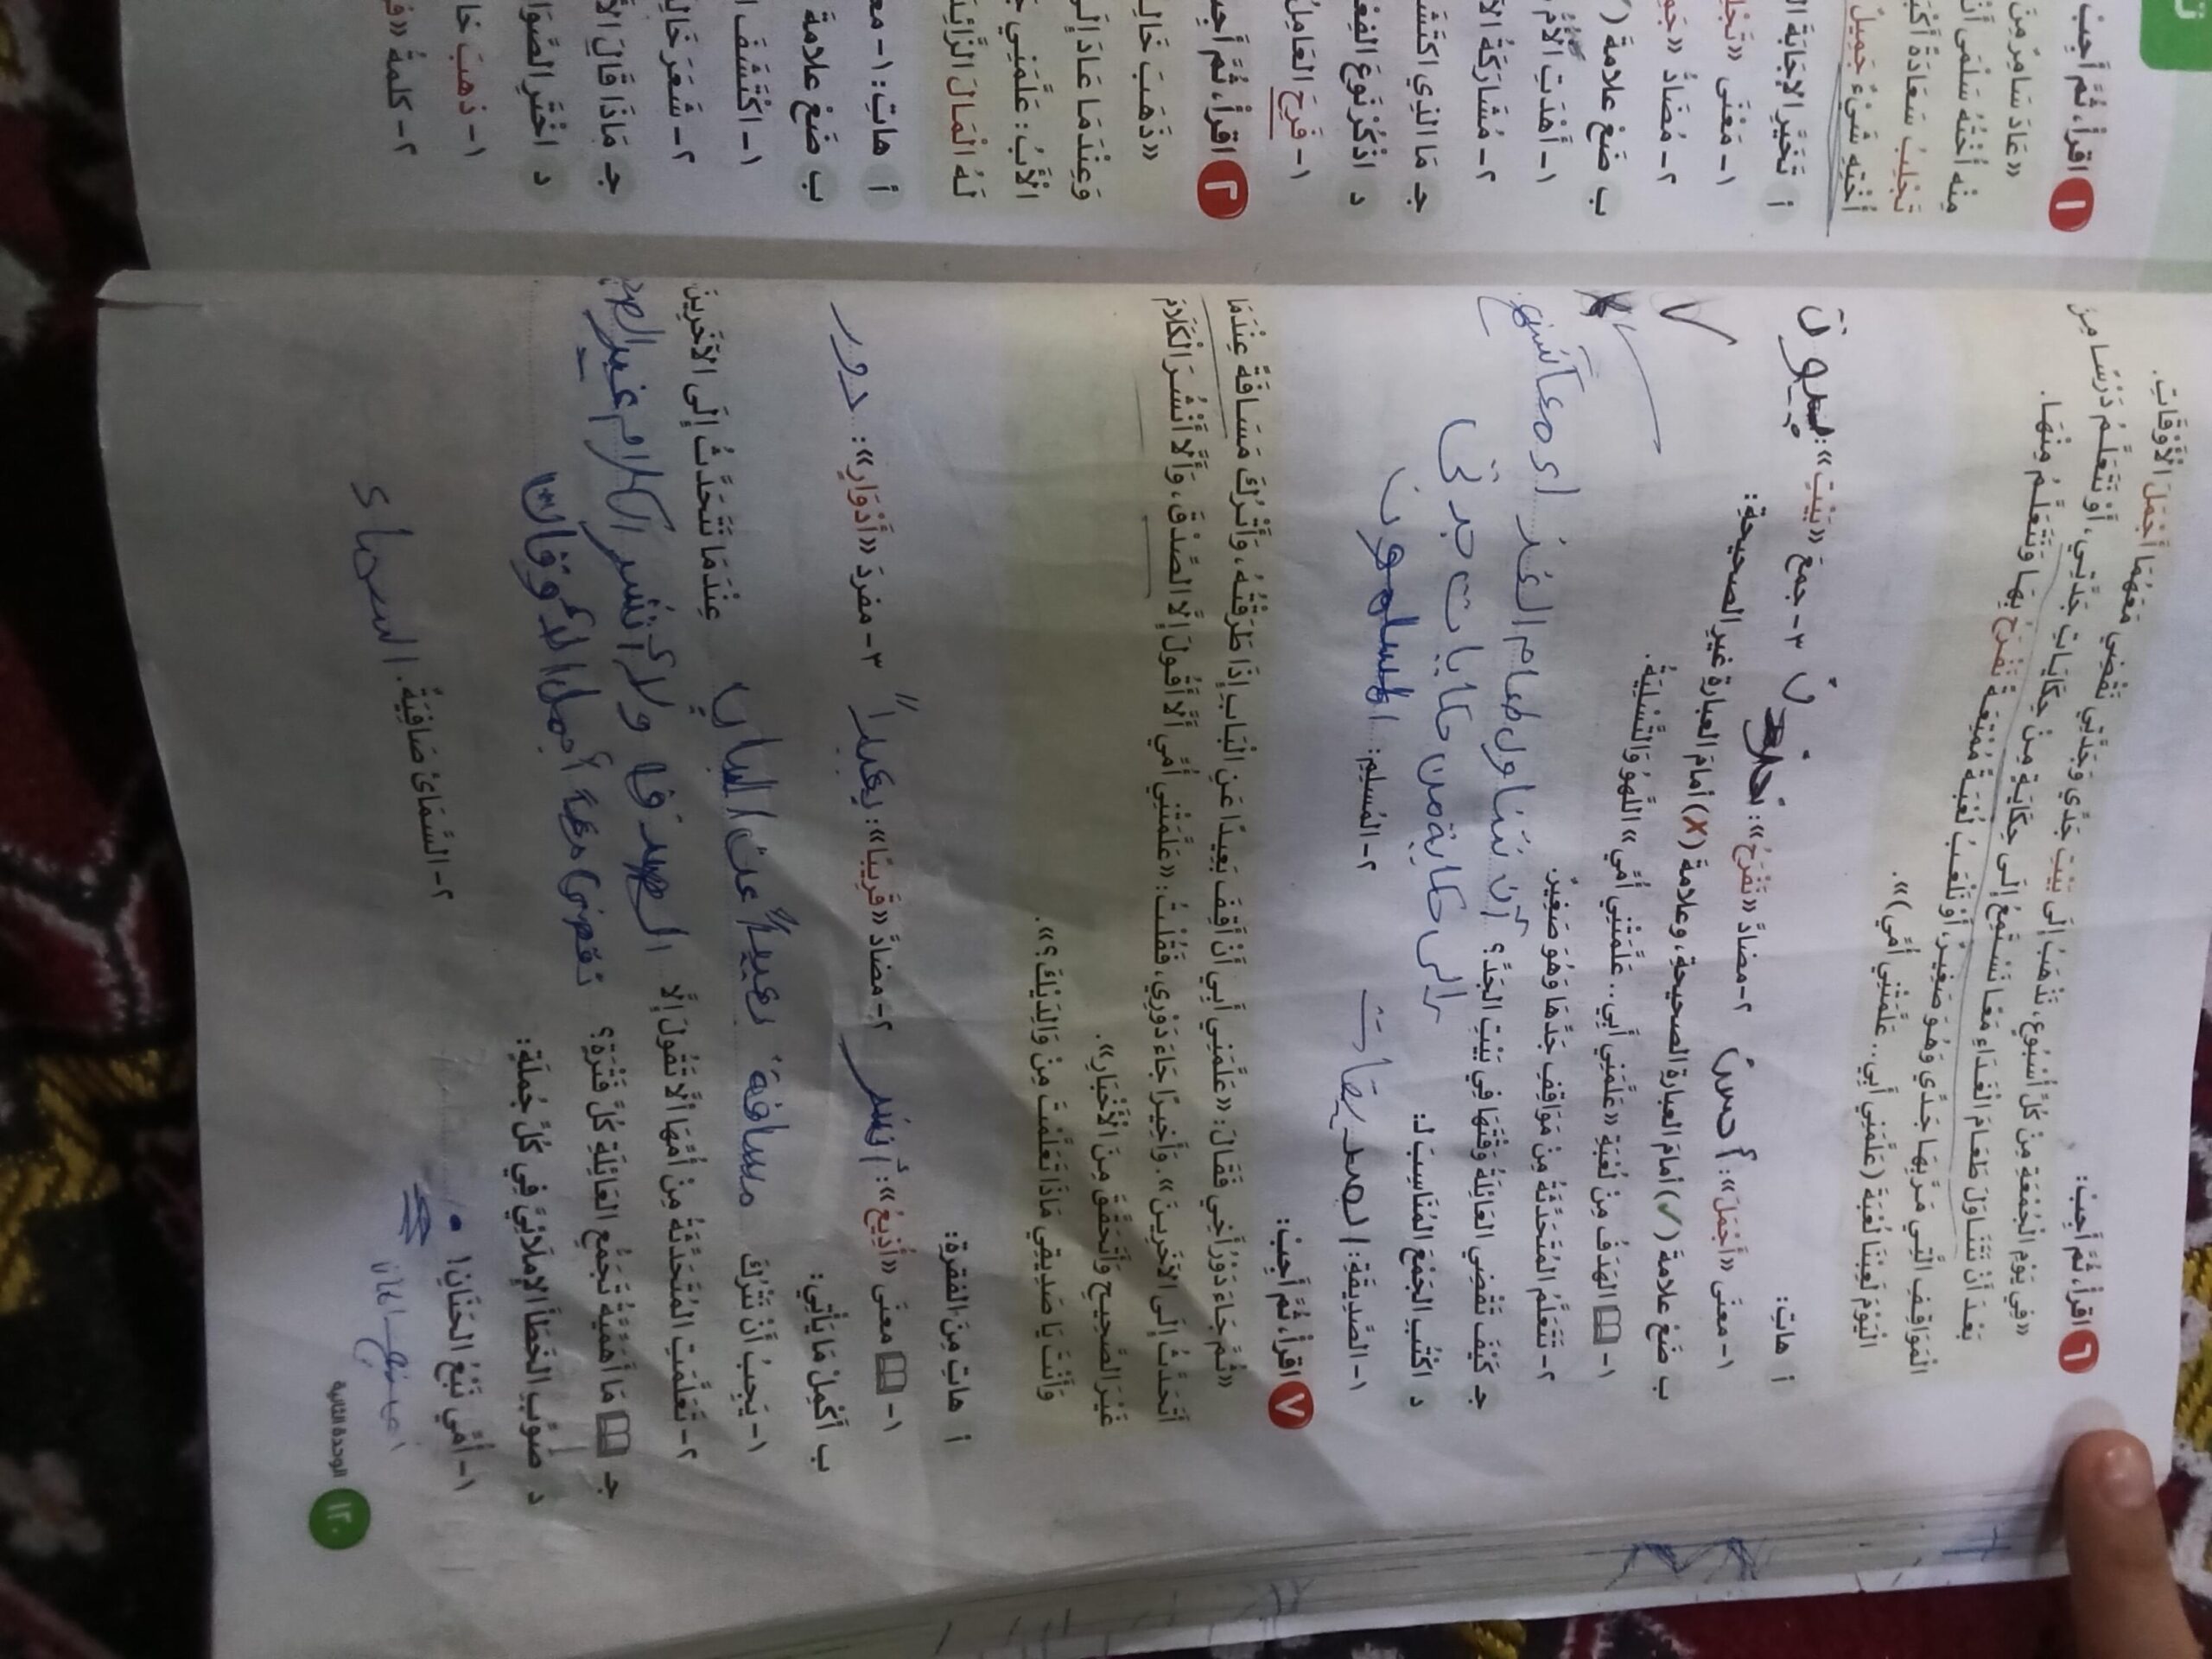 ٦ اقرأ، ثُمَّ أَجِبْ:
«فِي يَوْمِ الْجُمْعَةِ مِنْ كُلِّ أُسْبُوعٍ، نَذْهَبُ إِلَى بَيْتِ جَدِّي وَجَدَّتِي نَقْضِي مَعَهُمَا أَجْمَلَ الْأَوْقَاتِ.
بَعْدَ أَنْ نَتَنَاوَلَ طَعَامَ الْغَدَاءِ مَعًا نَسْتَمِعُ إِلَى حِكَايَةٍ مِنْ حِكَايَاتِ جَدَّتِي، أَوْ نَتَعَلَّمُ دَرْسًا مِنَ
الْمَوَاقِفِ الَّتِي مَرَّ بِهَا جَدِّي وَهُوَ صَغِيرٌ، أَوْ نَلْعَبُ لُعْبَةً مُمْتِعَةً نَفْرَحُ بِهَا وَنَتَعَلَّمُ مِنْهَا.
الْيَوْمَ لَعِبْنَا لُعْبَةَ (عَلَّمَنِي أَبِي.. عَلَّمَتْنِي أُمِّي)».
أ هاتِ:
١- معنَى «أَجْمَلَ»: أحسن ٢- مضادَّ «نَفْرَحُ»: نحزن ٣- جمعَ «بَيْتِ»: بيوت
ب ضَعْ علامةَ (✓) أمامَ العبارةِ الصحيحةِ، وعلامةَ (✗) أمامَ العبارةِ غيرِ الصحيحةِ:
١- الهَدَفُ مِنْ لُعْبَةِ «عَلَّمَنِي أَبِي.. عَلَّمَتْنِي أُمِّي» اللَّهْوُ وَالتَّسْلِيَةُ.
٢- تَتَعَلَّمُ المُتَحَدِّثَةُ مِنْ مَوَاقِفِ جَدِّهَا وَهُوَ صَغِيرٌ. ✓
جـ كَيْفَ تَقْضِي العَائِلَةُ وَقْتَهَا فِي بَيْتِ الجَدِّ؟ أن نتناول طعام الغد
الى حكاية من حكايات جدتى
د اكْتُبِ الجَمْعَ المُنَاسِبَ لـ:
١- الصَّدِيقَةِ: الصديقات ٢- المُسْلِمِ: المسلمون
٧ اقرأ، ثُمَّ أَجِبْ:
«ثُمَّ جَاءَ دَوْرُ أَخِي فَقَالَ: «عَلَّمَنِي أَبِي أَنْ أَقِفَ بَعِيدًا عَنِ الْبَابِ إِذَا طَرَقْتُهُ، وَأَتْرُكَ مَسَافَةً عِنْدَمَا
أَتَحَدَّثُ إِلَى الْآخَرِينَ». وَأَخِيرًا جَاءَ دَوْرِي، فَقُلْتُ: «عَلَّمَتْنِي أُمِّي أَلَّا أَقُولَ إِلَّا الصِّدْقَ، وَأَلَّا أَنْشُرَ الْكَلَامَ
غَيْرَ الصَّحِيحِ وَأَتَحَقَّقَ مِنَ الْأَخْبَارِ».
وَأَنْتَ يَا صَدِيقِي مَاذَا تَعَلَّمْتَ مِنْ وَالِدَيْكَ؟».
أ هاتِ مِنَ الفقرةِ:
١- معنَى «أُذِيعُ»: أنشر ٢- مضادَّ «قَرِيبًا»: بعيداً ٣- مفردَ «أَدْوَارٍ»: دور
ب أَكْمِلْ مَا يَأْتِي:
١- يَجِبُ أَنْ نَتْرُكَ مسافة بعيداً عن الباب عِنْدَمَا نَتَحَدَّثُ إِلَى الآخَرِينَ.
٢- تَعَلَّمَتِ المُتَحَدِّثَةُ مِنْ أُمِّهَا أَلَّا تَقُولَ إِلَّا الصدق ولا أنشر الكلام غير
جـ مَا أَهَمِّيَّةُ تَجَمُّعِ العَائِلَةِ كُلَّ فَتْرَةٍ؟ نقضى معهما أجمل الأوقات
د صَوِّبِ الخَطَأَ الإِمْلَائِيَّ فِي كُلِّ جُمْلَةٍ:
١- أُمِّي نَبْعُ الحَنَانِ! ٢- السَّمَائُ صَافِيَةٌ. السماء
١٢٠ الوحدة الثانية
١ اقرأ، ثُمَّ أَجِبْ
«عَادَ سَامِرٌ مِنَ
مِنْهُ أُخْتُهُ سَلْمَى أَنْ
تَجْلِبُ سَعَادَةً أَكْبَ
أُخْتِهِ شَيْءٌ جَمِيلٌ
أ تَخَيَّرِ الإِجَابَةَ
١- مَعْنَى «تَجْلِ
٢- مُضَادُّ «جَمِ
ب ضَعْ علامةَ (
١- أَهْدَتِ الأُمُّ
٢- مُشَارَكَةُ الأ
جـ مَا الذِي اكْتَشَ
د اذْكُرْ نَوْعَ الفِعْ
١- فَرِحَ العَامِلُ
٢ اقرأ، ثُمَّ أَجِبْ
«ذَهَبَ خَالِ
وَعِنْدَمَا عَادَ إِلَى
الْأَبُ: عَلَّمَنِي
لَهُ الْمَالَ الزَّائِدَ
أ هاتِ: ١- مع
ب ضَعْ علامةَ
١- اكْتَشَفَ
٢- شَعَرَ خَالِ
جـ مَاذَا قَالَ الأ
د اخْتَرِ الصَّوَا
١- ذَهَبَ خَا
٢- كَلِمَةُ «فَ